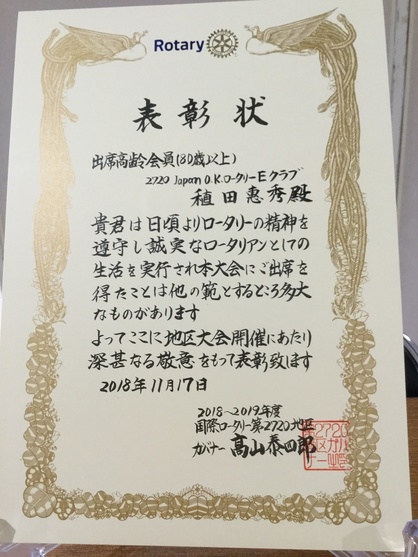 Rotary
表彰状
出席高齢会員(80歳以上)
2720 Japan O.K.ロータリーEクラブ
植田惠秀殿
貴君は日頃よりロータリーの精神を
遵守し誠実なロータリアンとしての
生活を実行され本大会にご出席を
得たことは他の範とするところ多大
なものがあります
よってここに地区大会開催にあたり
深甚なる敬意をもって表彰致します
2018年11月17日
2018〜2019年度
国際ロータリー第2720地区
ガバナー 髙山泰四郎